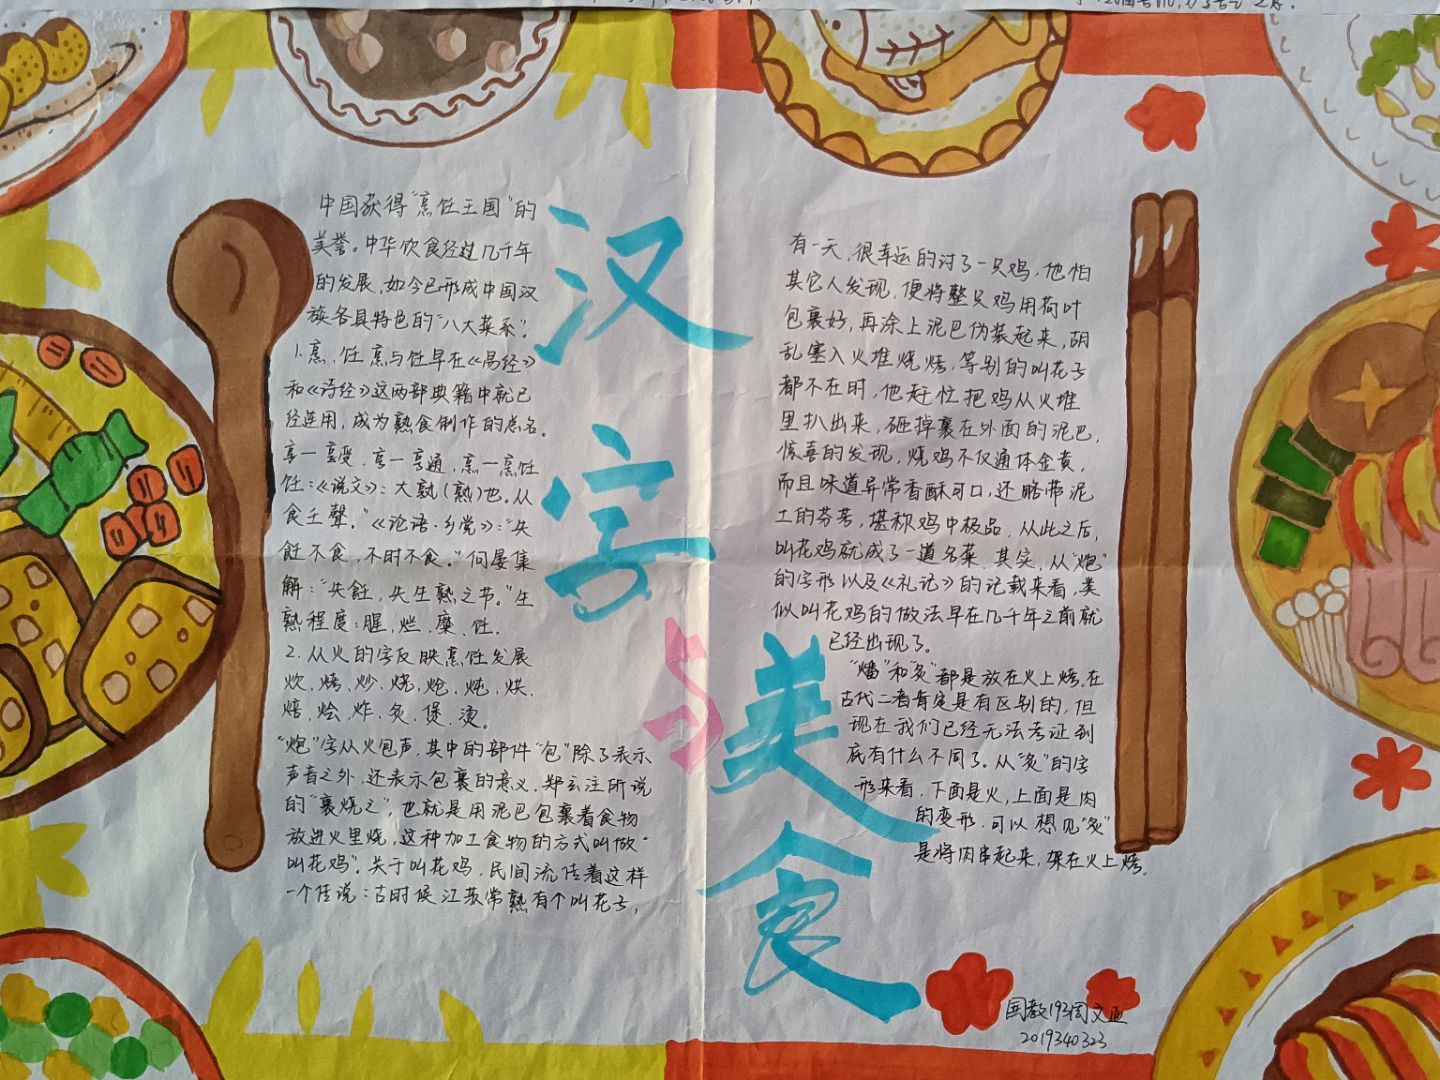 汉字与美食
中国获得“烹饪王国”的
美誉。中华饮食经过几千年
的发展,如今已形成中国汉
族各具特色的“八大菜系”。
1.烹、饪 烹与饪早在《易经》
和《诗经》这两部典籍中就已
经连用,成为熟食制作的总名。
享一享受,享一亨通,烹一烹饪
饪:《说文》:大熟(熟)也。从
食壬聲。”《论语·乡党》:“失
飪不食,不时不食。”何晏集
解:“失飪,失生熟之节。”生
熟程度:腥、烂、糜、饪.
2.从火的字反映烹饪发展
炊、烤、炒、烧、炝、炖、烘、
焙、烩、炸、炙、煲、烫。
“炮”字从火包声,其中的部件“包”除了表示
声音之外,还表示包裹的意义.郑玄注所说
的“裹烧之”,也就是用泥巴包裹着食物
放进火里烧,这种加工食物的方式叫做“
叫花鸡”。关于叫花鸡,民间流传着这样
一个传说:古时候江苏常熟有个叫花子,
有一天,很幸运的讨了一只鸡,他怕
其它人发现,便将整只鸡用荷叶
包裹好,再涂上泥巴伪装起来,胡
乱塞入火堆烧烤,等别的叫花子
都不在时,他赶忙把鸡从火堆
里扒出来,砸掉裹在外面的泥巴,
惊喜的发现,烧鸡不仅通体金黄,
而且味道异常香酥可口,还略带泥
土的芬芳,堪称鸡中极品,从此之后,
叫花鸡就成了一道名菜.其实,从“炮”
的字形以及《礼记》的记载来看,类
似叫花鸡的做法早在几千年之前就
已经出现了。
“燔”和“炙”都是放在火上烤.在
古代二者肯定是有区别的,但
现在我们已经无法考证到
底有什么不同了。从“炙”的字
形来看,下面是火,上面是肉
的变形.可以想见“炙”
是将肉串起来,架在火上烤。
国教193周文亚
2019340323